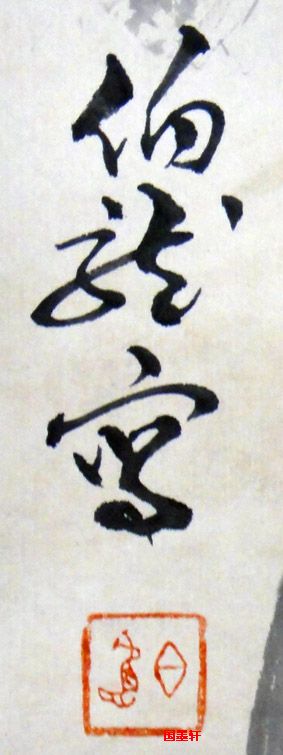 伯龍寫
国墨轩